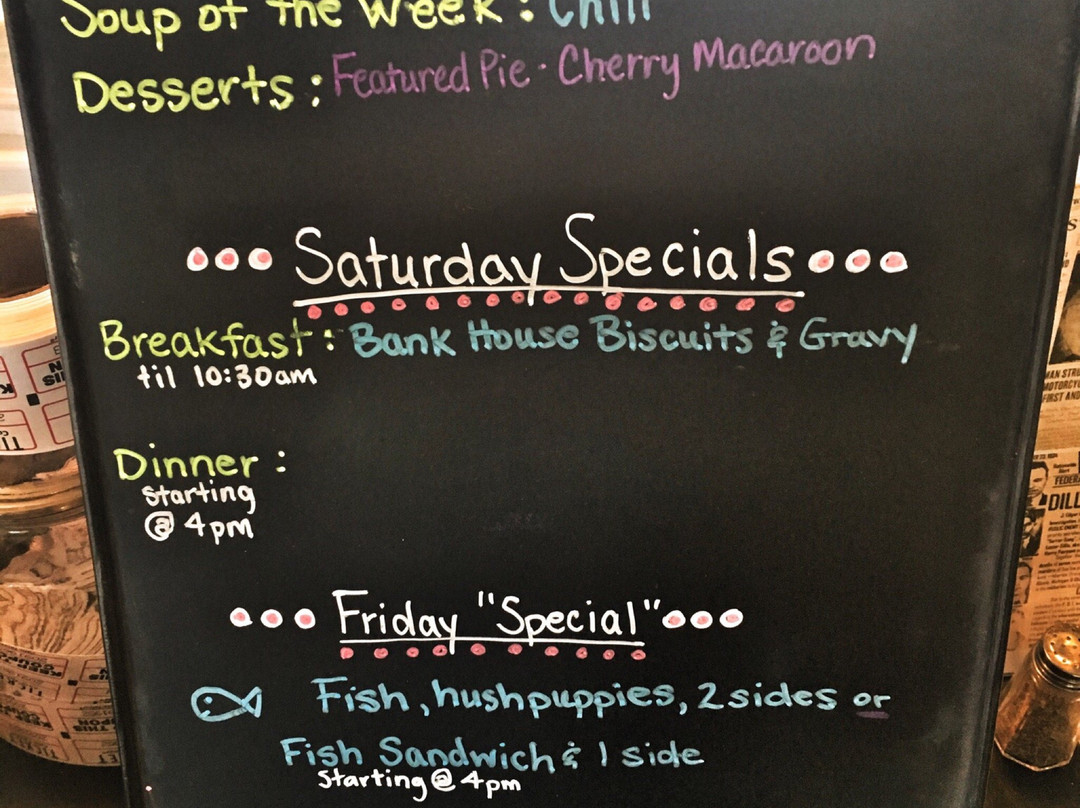 Soup of the Week : Chili
Desserts : Featured Pie - Cherry Macaroon
Saturday Specials
Breakfast : Bank House Biscuits & Gravy
til 10:30am
Dinner :
starting
@ 4pm
Friday "Special"
Fish, hushpuppies, 2 sides or
Fish Sandwich & 1 side
Starting @ 4pm